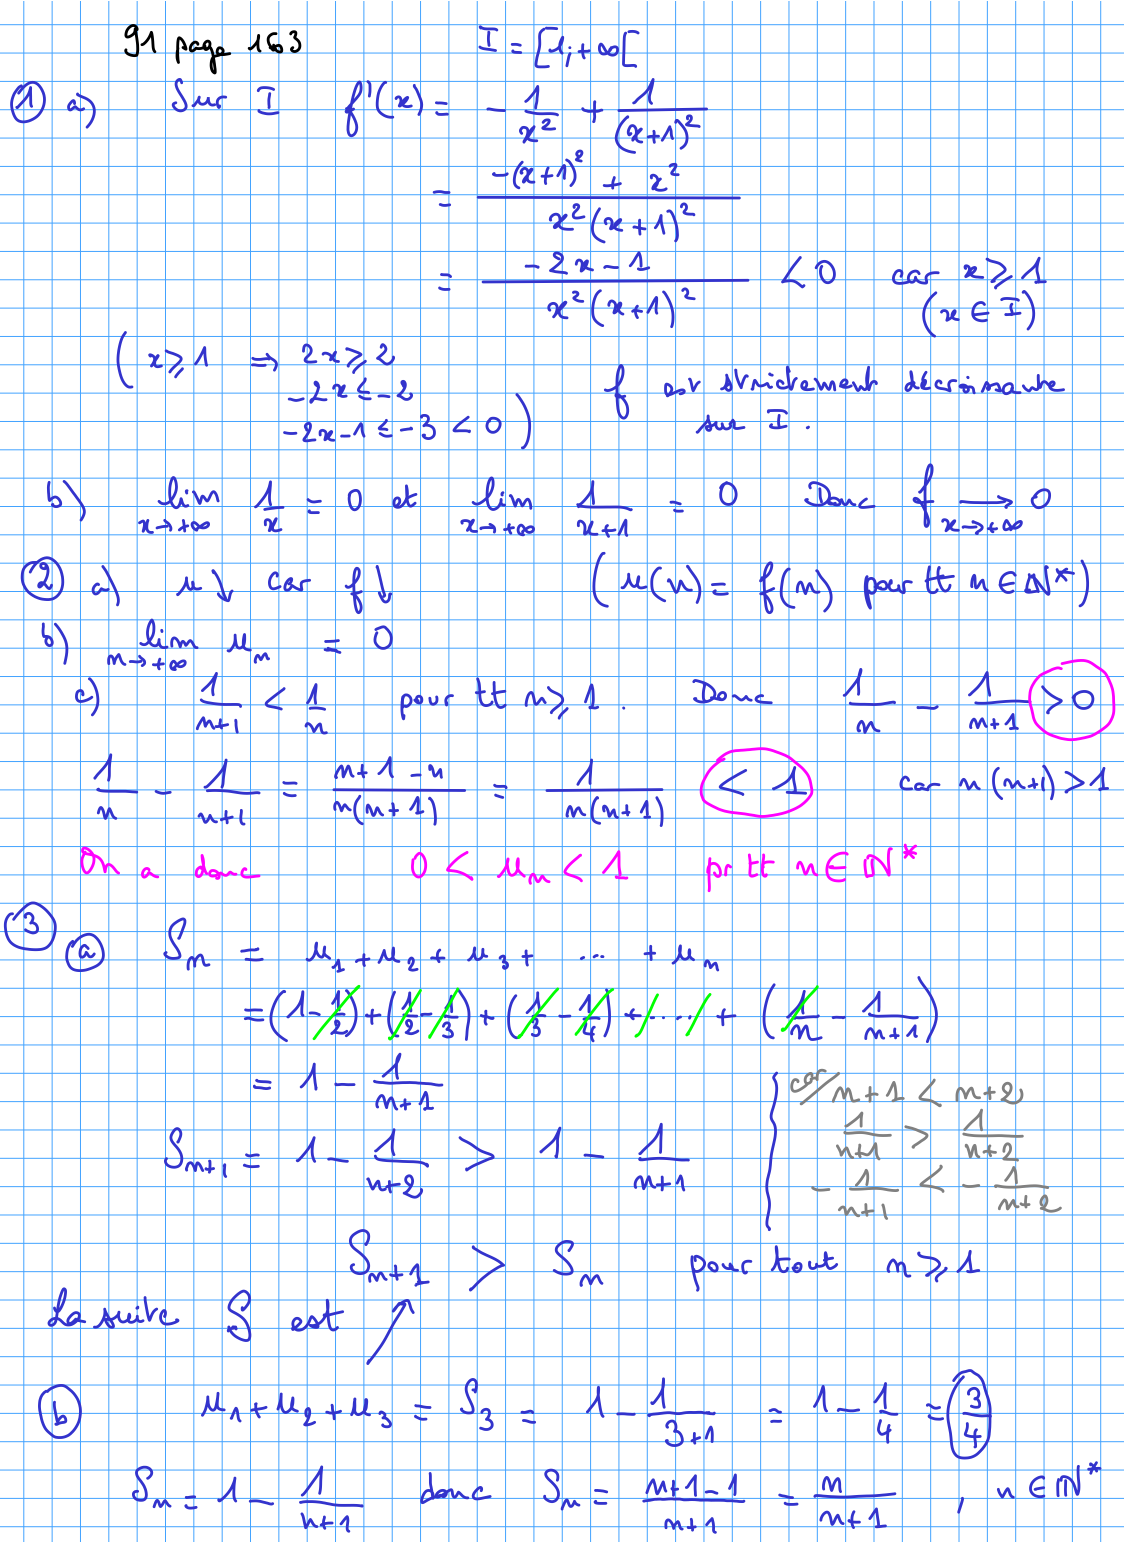 91 page 163 I = [1; +∞[
① a) Sur I f'(x) = - 1/x² + 1/(x+1)²
= (-(x+1)² + x²)/(x²(x+1)²)
= (-2x-1)/(x²(x+1)²) < 0 car x ⩾ 1
(x ∈ I)
(x ⩾ 1 ⇒ 2x ⩾ 2
-2x ⩽ -2
-2x-1 ⩽ -3 < 0)
f est strictement décroissante
sur I.
b) lim x→+∞ 1/x = 0 et lim x→+∞ 1/(x+1) = 0 Donc f ⟶ x→+∞ 0
② a) u ↘ car f ↓ (u(n) = f(n) pour tt n ∈ ℕ*)
b) lim n→+∞ uₙ = 0
c) 1/(n+1) < 1/n pour tt n ⩾ 1. Donc 1/n - 1/(n+1) > 0
1/n - 1/(n+1) = (n+1-n)/(n(n+1)) = 1/(n(n+1)) < 1 car n(n+1) > 1
On a donc 0 < uₙ < 1 pr tt n ∈ ℕ*
③ ⓐ Sₙ = u₁ + u₂ + u₃ + ... + uₙ
= (1 - 1/2) + (1/2 - 1/3) + (1/3 - 1/4) + .... + (1/n - 1/(n+1))
= 1 - 1/(n+1)
Sₙ₊₁ = 1 - 1/(n+2) > 1 - 1/(n+1)
car n+1 < n+2
1/(n+1) > 1/(n+2)
- 1/(n+1) < - 1/(n+2)
Sₙ₊₁ > Sₙ pour tout n ⩾ 1
La suite S est ↗
ⓑ u₁ + u₂ + u₃ = S₃ = 1 - 1/(3+1) = 1 - 1/4 = 3/4
Sₙ = 1 - 1/(n+1) donc Sₙ = (n+1-1)/(n+1) = n/(n+1) , n ∈ ℕ*